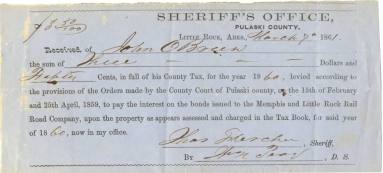 SHERIFF'S OFFICE,
PULASKI COUNTY.
$3 50/100 LITTLE ROCK, ARKS. March 7th 1861.
Received, of John O'Brien
the sum of Three Dollars and
Fifty Cents, in full of his County Tax, for the year 1860, levied according to
the provisions of the Orders made by the County Court of Pulaski county, on the 15th of February
and 25th April, 1859, to pay the interest on the bonds issued to the Memphis and Little Rock Rail
Road Company, upon the property as appears assessed and charged in the Tax Book, for said year
of 1860, now in my office.
Thos Fletcher Sheriff,
By Wm D. S.